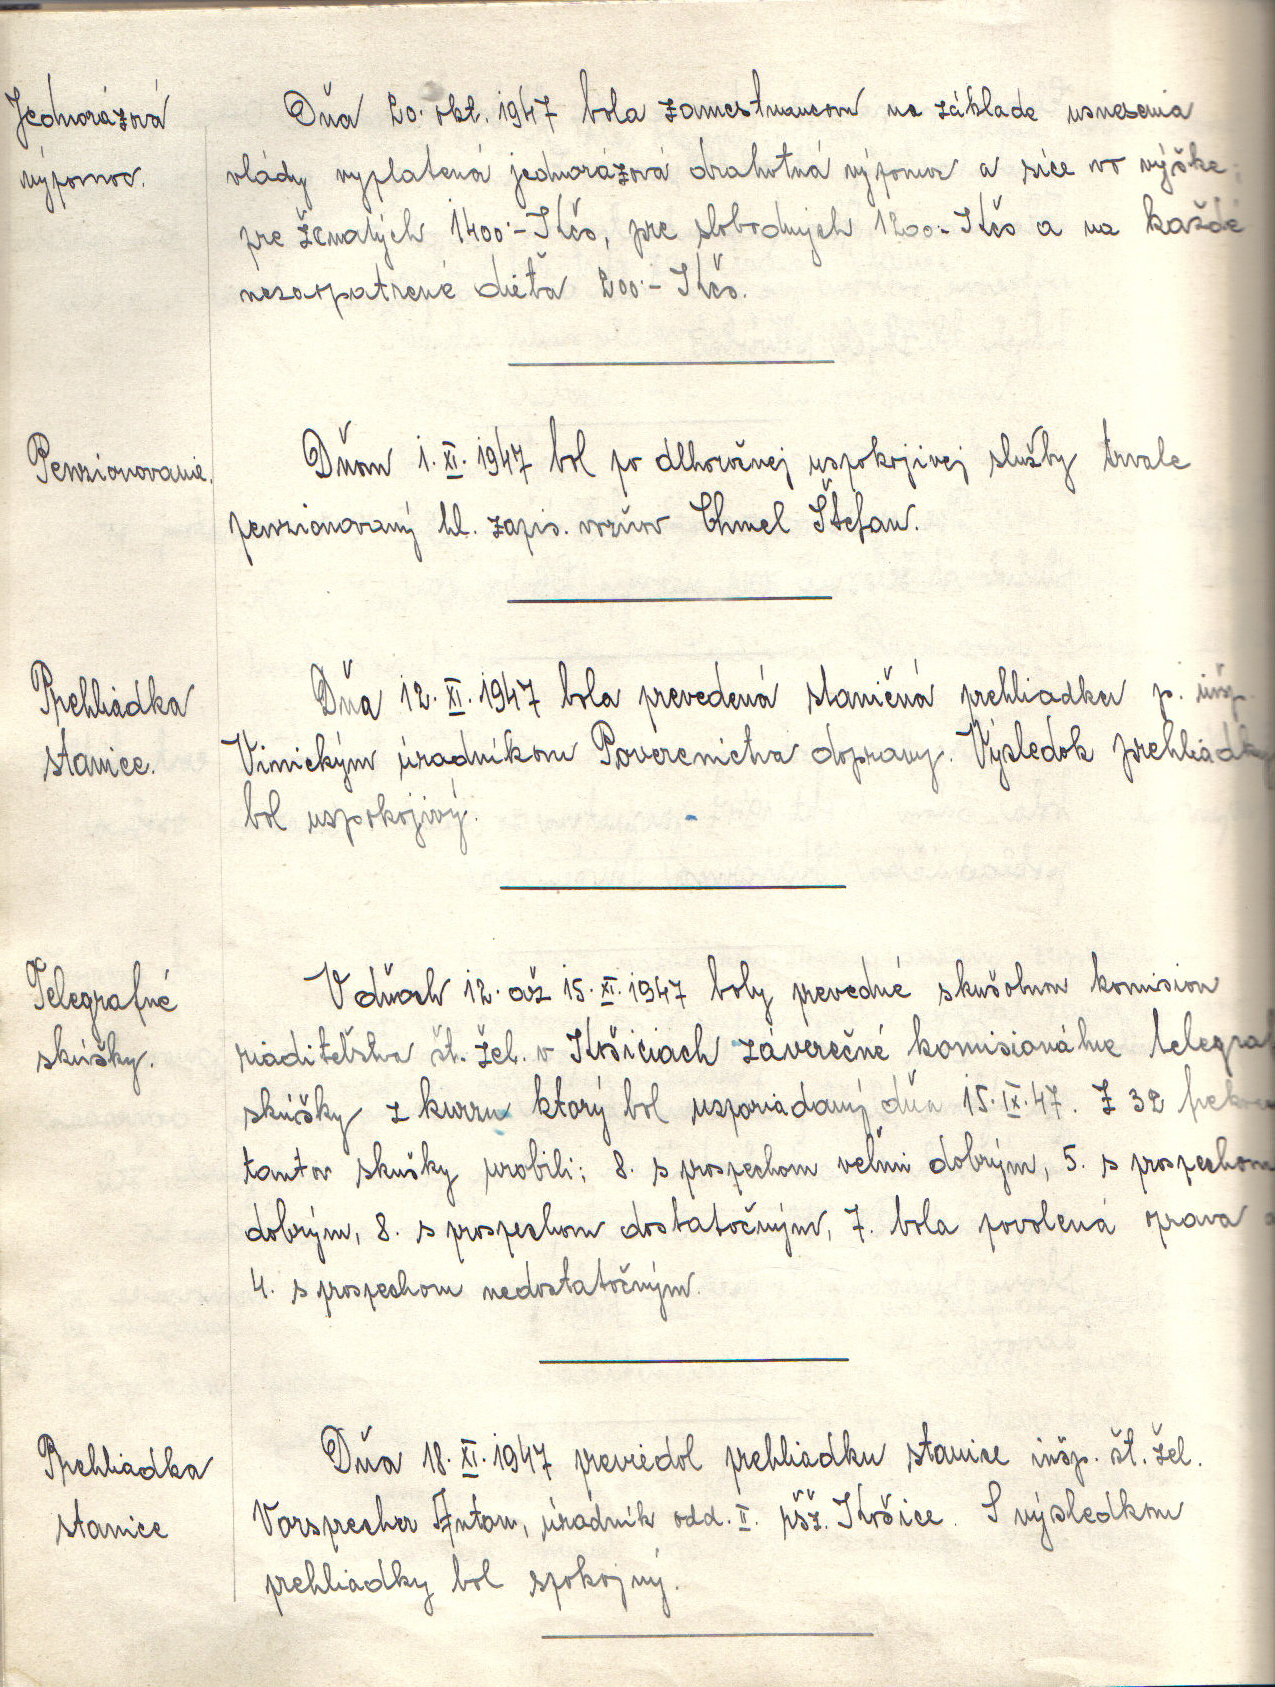 Jednorázová
výpomoc.
Dňa 20. okt. 1947 bola zamestnancom na základe usnesenia
vlády vyplatená jednorázová drahotná výpomoc a síce vo výške:
pre ženatých 1400·- Kčs, pre slobodných 1200·- Kčs a na každé
nezaopatrené dieťa 200·- Kčs.
Penzionovanie.
Dňom 1. XI. 1947 bol po dlhoročnej uspokojivej služby trvale
penzionovaný hl. zapis. vozňov Chmel Štefan.
Prehliadka
stanice.
Dňa 12. XI. 1947 bola prevedená staničná prehliadka p. inšp.
Vinickým úradníkom Poverenictva dopravy. Výsledok prehliadky
bol uspokojivý.
Telegrafné
skúšky.
V dňoch 12. až 15. XI. 1947 boly prevedné skušobnou komisiou
riaditeľstva št. žel. v Košiciach záverečné komisionálne telegraf
skúšky z kurzu ktorý bol usporiadaný dňa 15. IX. 47. Z 32
tantov skušky urobili; 8. s prospechom veľmi dobrým, 5. s prospechom
dobrým, 8. s prospechom dostatočným, 7. bola povolená oprava a
4. s prospechom nedostatočným.
Prehliadka
stanice
Dňa 18. XI. 1947 previedol prehliadku stanice inšp. št. žel.
Vorsprecher Anton, úradník odd. II. pšž. Košice. S výsledkom
prehliadky bol spokojný.